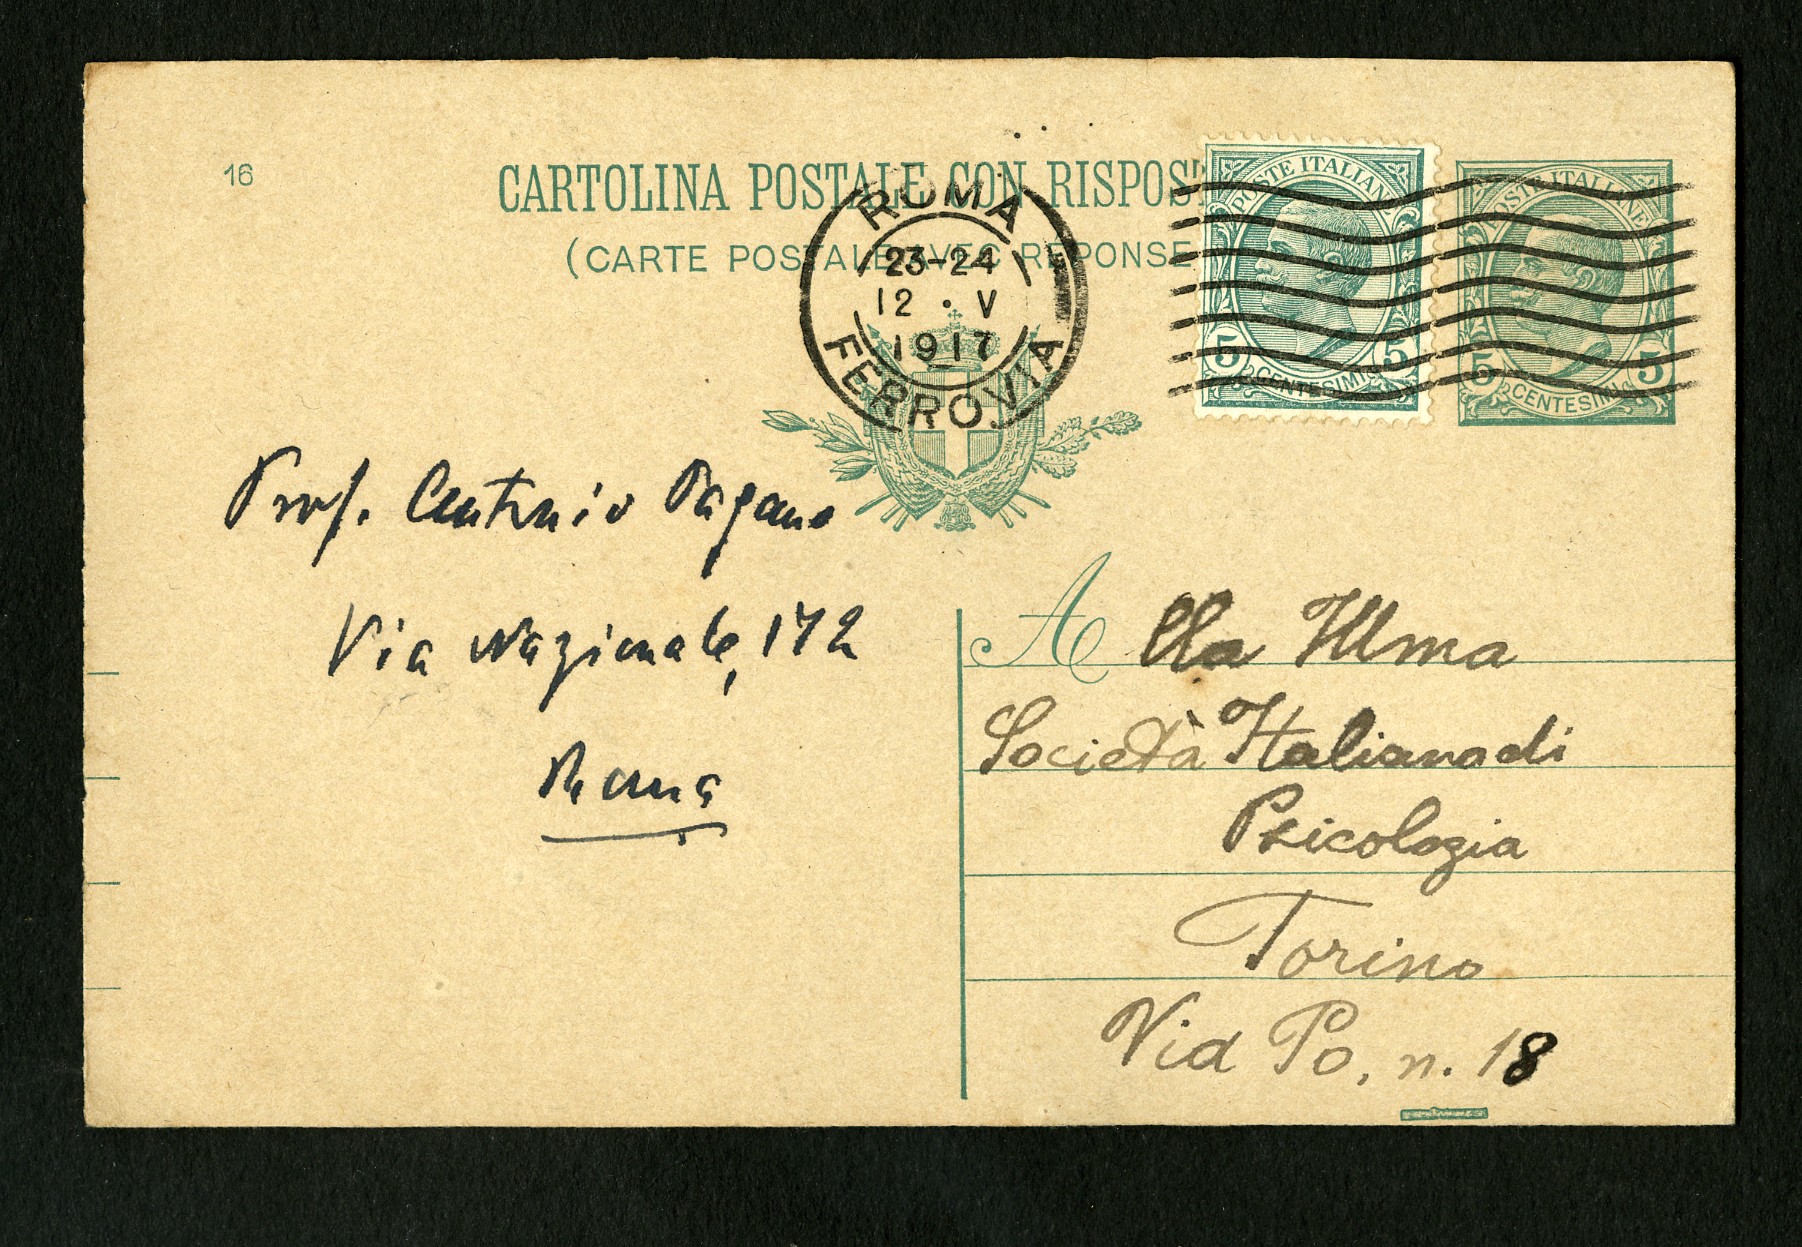 16
CARTOLINA POSTALE CON RISPOS
(CARTE POSTALE AVEC RÉPONSE
ROMA
23-24
12 · V
1917
FERROVIA
POSTE ITALIAN
5 5
CENTESIMI
POSTE ITALIANE
5 5
CENTESIMI
Prof. Antonio Pagano
Via Nazionale, 172
Roma
Alla Illma
Società Italiana di
Psicologia
Torino
Via Po, n. 18